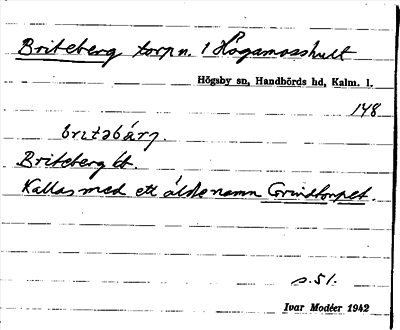 Briteberg torpn. / Högamosshult
Högsby sn, Handbörds hd, Kalm. l.
148
britəbärj.
Briteberg lt.
Kallas med ett äldre namn Grindtorpet.
s. 51.
Ivar Modéer 1942